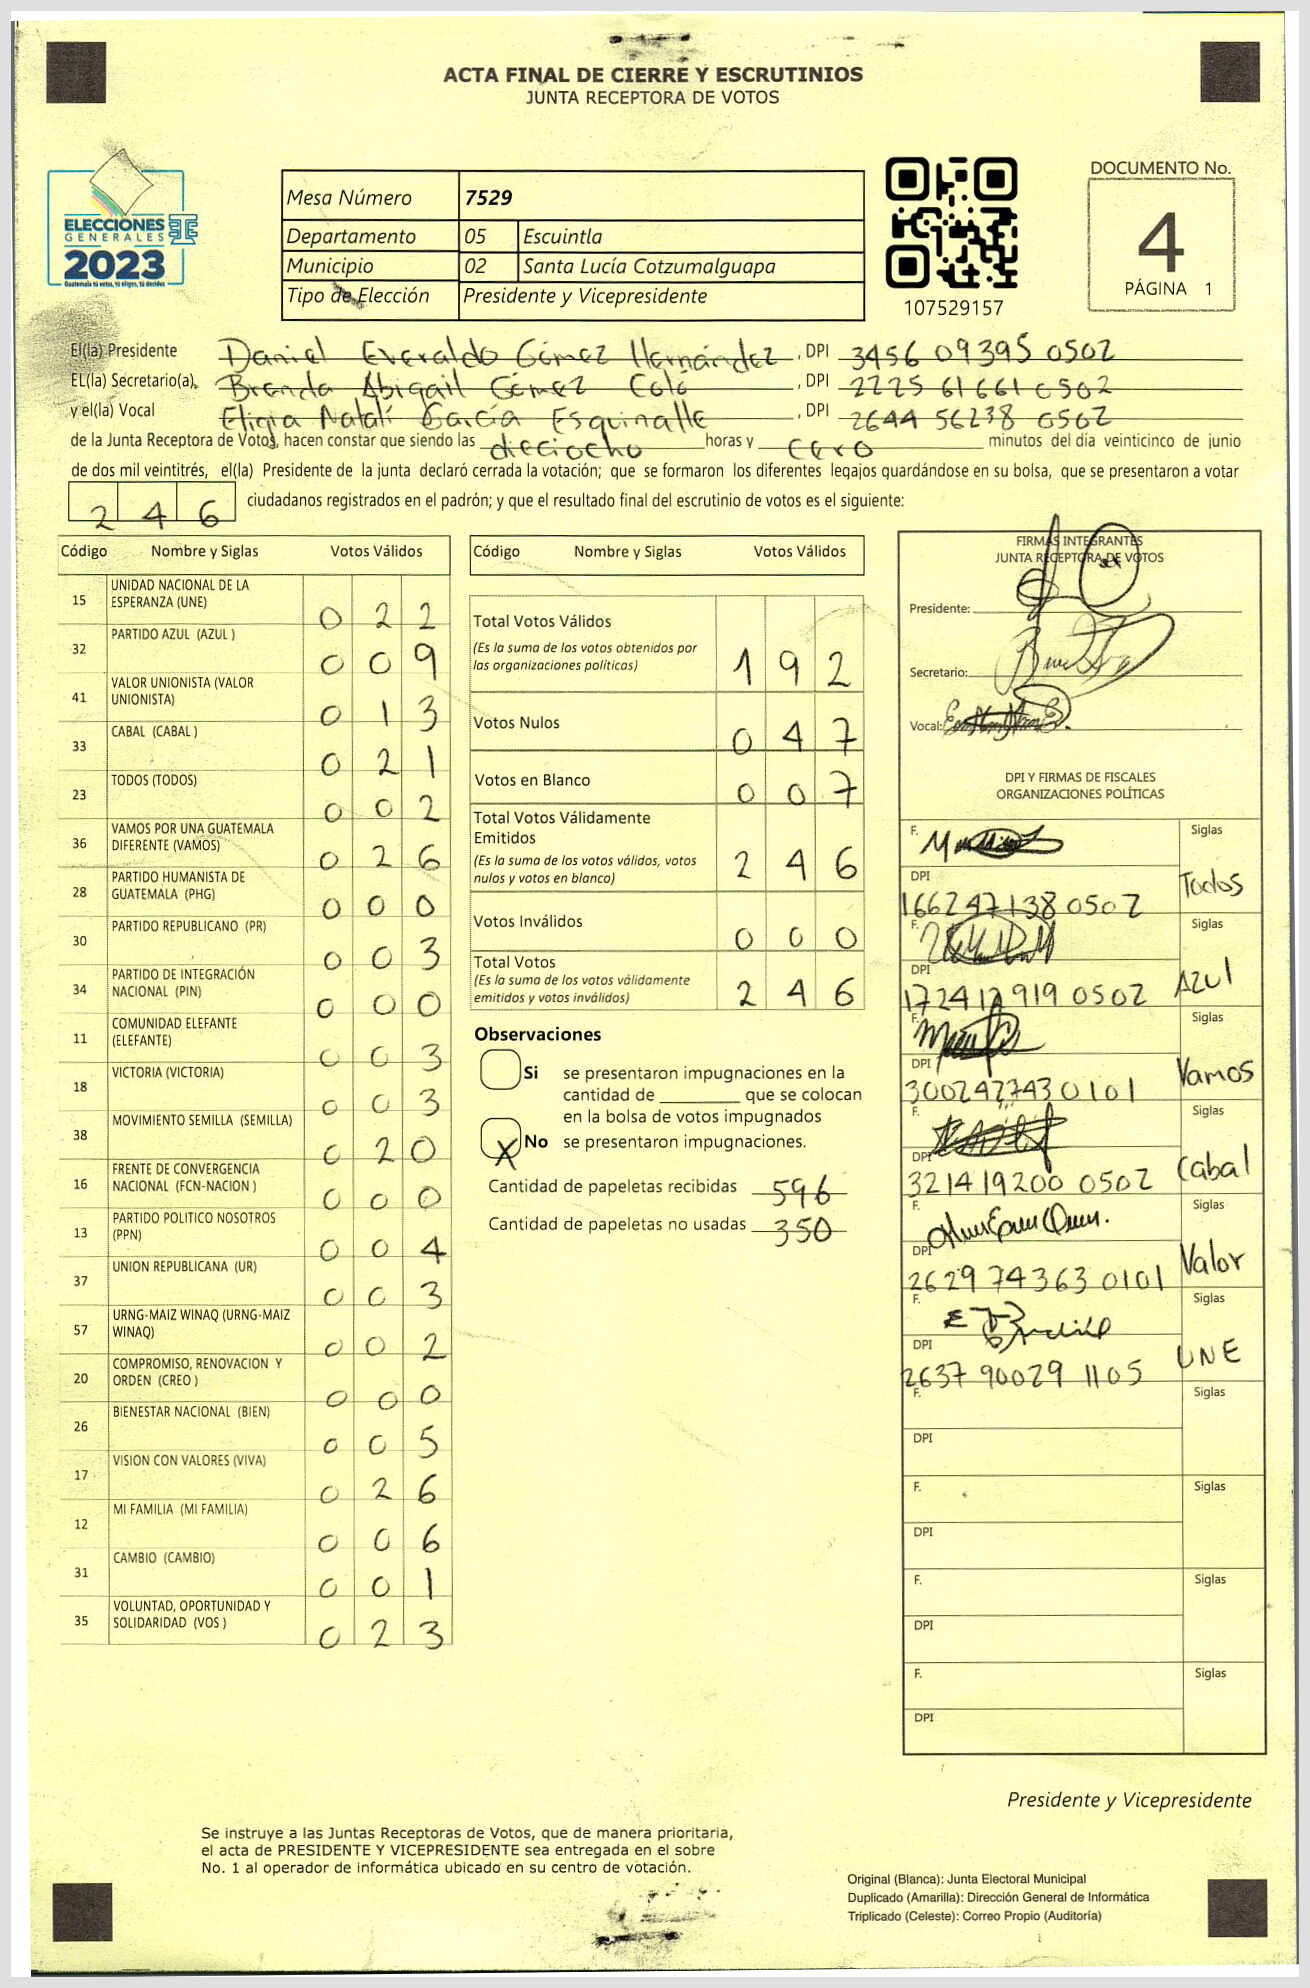 ACTA FINAL DE CIERRE Y ESCRUTINIOS
JUNTA RECEPTORA DE VOTOS
ELECCIONES
GENERALES
2023
Guatemala tú votas, tú eliges, tú decides
Mesa Número 7529
Departamento 05 Escuintla
Municipio 02 Santa Lucía Cotzumalguapa
Tipo de Elección Presidente y Vicepresidente
107529157
DOCUMENTO No.
4
PÁGINA 1
El(la) Presidente Daniel Everaldo Gómez Hernández , DPI 3456 09395 0502
EL(la) Secretario(a), Brenda Abigail Gómez Coló , DPI 2225 61661 0502
y el(la) Vocal Eligia Natalí García Esquinalle , DPI 2644 56238 0502
de la Junta Receptora de Votos, hacen constar que siendo las dieciocho horas y cero minutos del día veinticinco de junio
de dos mil veintitrés, el(la) Presidente de la junta declaró cerrada la votación; que se formaron los diferentes legajos guardándose en su bolsa, que se presentaron a votar
2 4 6 ciudadanos registrados en el padrón; y que el resultado final del escrutinio de votos es el siguiente:
Código Nombre y Siglas Votos Válidos
15 UNIDAD NACIONAL DE LA ESPERANZA (UNE) 0 2 2
32 PARTIDO AZUL (AZUL ) 0 0 9
41 VALOR UNIONISTA (VALOR UNIONISTA) 0 1 3
33 CABAL (CABAL ) 0 2 1
23 TODOS (TODOS) 0 0 2
36 VAMOS POR UNA GUATEMALA DIFERENTE (VAMOS) 0 2 6
28 PARTIDO HUMANISTA DE GUATEMALA (PHG) 0 0 0
30 PARTIDO REPUBLICANO (PR) 0 0 3
34 PARTIDO DE INTEGRACIÓN NACIONAL (PIN) 0 0 0
11 COMUNIDAD ELEFANTE (ELEFANTE) 0 0 3
18 VICTORIA (VICTORIA) 0 0 3
38 MOVIMIENTO SEMILLA (SEMILLA) 0 2 0
16 FRENTE DE CONVERGENCIA NACIONAL (FCN-NACION ) 0 0 0
13 PARTIDO POLITICO NOSOTROS (PPN) 0 0 4
37 UNION REPUBLICANA (UR) 0 0 3
57 URNG-MAIZ WINAQ (URNG-MAIZ WINAQ) 0 0 2
20 COMPROMISO, RENOVACION Y ORDEN (CREO ) 0 0 0
26 BIENESTAR NACIONAL (BIEN) 0 0 5
17 VISION CON VALORES (VIVA) 0 2 6
12 MI FAMILIA (MI FAMILIA) 0 0 6
31 CAMBIO (CAMBIO) 0 0 1
35 VOLUNTAD, OPORTUNIDAD Y SOLIDARIDAD (VOS ) 0 2 3
Código Nombre y Siglas Votos Válidos
Total Votos Válidos 1 9 2
(Es la suma de los votos obtenidos por
las organizaciones políticas)
Votos Nulos 0 4 7
Votos en Blanco 0 0 7
Total Votos Válidamente
Emitidos 2 4 6
(Es la suma de los votos válidos, votos
nulos y votos en blanco)
Votos Inválidos 0 0 0
Total Votos 2 4 6
(Es la suma de los votos válidamente
emitidos y votos inválidos)
Observaciones
Si se presentaron impugnaciones en la
cantidad de ________ que se colocan
en la bolsa de votos impugnados
X No se presentaron impugnaciones.
Cantidad de papeletas recibidas 596
Cantidad de papeletas no usadas 350
FIRMAS INTEGRANTES
JUNTA RECEPTORA DE VOTOS
Presidente:
Secretario:
Vocal:
DPI Y FIRMAS DE FISCALES
ORGANIZACIONES POLÍTICAS
F. Siglas
DPI Todos
1662 47138 0502
F. Siglas
DPI AZUl
1724 12919 0502
F. Siglas
DPI Vamos
3002427430101
F. Siglas
DPI Cabal
3214 19200 0502
F. Siglas
DPI Valor
2629 74363 0101
F. Siglas
DPI UNE
2637 90029 1105
F. Siglas
DPI
F. Siglas
DPI
F. Siglas
DPI
F. Siglas
DPI
Presidente y Vicepresidente
Se instruye a las Juntas Receptoras de Votos, que de manera prioritaria,
el acta de PRESIDENTE Y VICEPRESIDENTE sea entregada en el sobre
No. 1 al operador de informática ubicado en su centro de votación.
Original (Blanca): Junta Electoral Municipal
Duplicado (Amarilla): Dirección General de Informática
Triplicado (Celeste): Correo Propio (Auditoría)